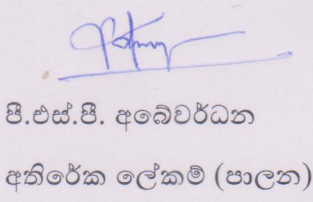 පී.එස්.පී. අබේවර්ධන
අතිරේක ලේකම් (පාලන)